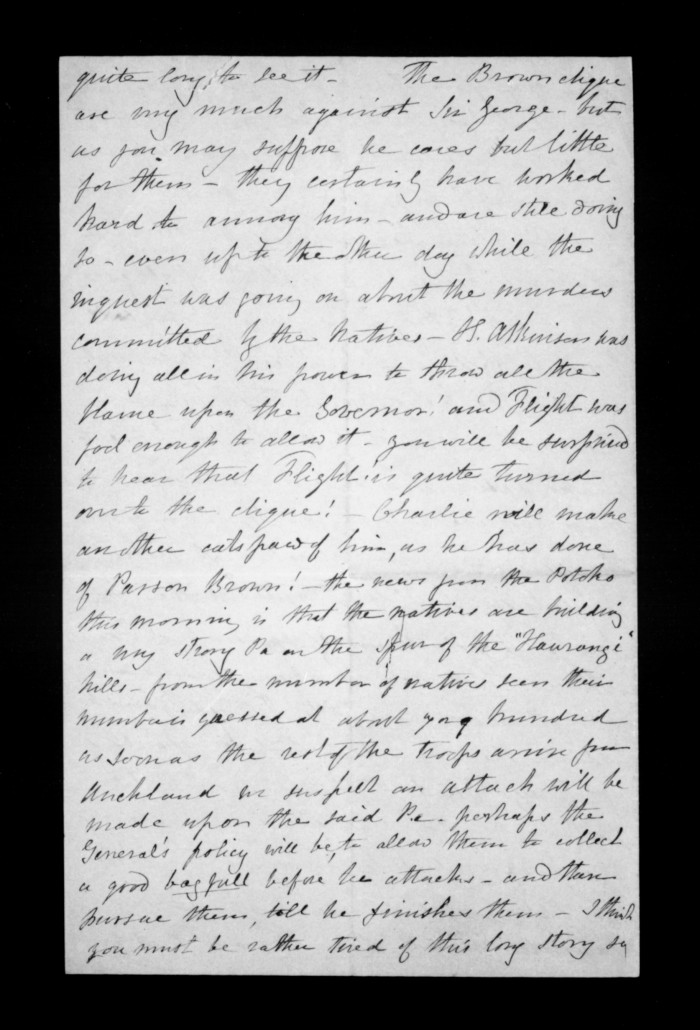 quite long to see it - The Brown clique
are very much against Sir George - but
as you may suppose he cares but little
for them - they certainly have worked
hard to annoy him - and are still doing
so - even up to the other day while the
inquest was going on about the murders
committed by the Natives - H. Atkinson was
doing all in his power to throw all the
blame upon the Governor! and Flight was
fool enough to allow it - you will be surprised
to hear that Flight! is quite turned
over to the clique! - Charlie will make
another catspaw of him, as he has done
of Parson Brown! - the news from the Potoko
this morning is that the natives are building
a very strong Pa on the spur of the "Kauranga"
hills - from the number of natives seen their
number is guessed at about hundred
as soon as the rest of the troops arrive from
Auckland we suspect an attack will be
made upon the said Pa - perhaps the
General's policy will be, to allow them to collect
a good bag full before he attacks - and then
pursue them, till he finishes them - I think
you must be rather tired of this long story so